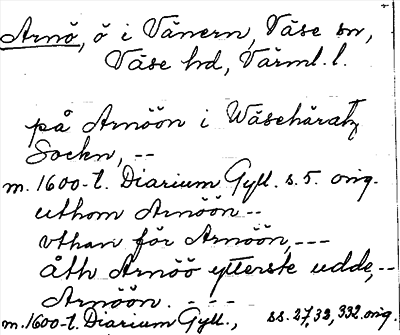 Arnö, ö i Vänern, Väse sn,
Väse hd, Värml. l.
på Arnöön i Wäsehäratz
Sockn, --
m. 1600-t. Diarium Gyll. s. 5. orig.
uthom Arnöön --
vthan för Arnöön, ---
åth Arnöö ytterste udde, --
Arnöön. - - -
m. 1600-t. Diarium Gyll., ss. 27, 32, 332. orig.